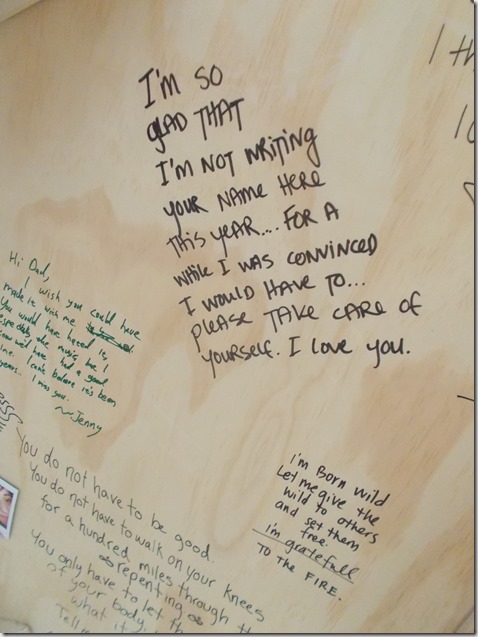 I'm so
glad that
I'm not writing
your name here
this year.... for a
while I was convinced
I would have to...
please take care of
yourself. I love you.
I th
Hi Dad,
I wish you could have
made it with me
You would have hated it,
especially the music but I
know we'd have had a good
time. I can't believe it's been
years.. I miss you.
~Jenny
You do not have to be good.
You do not have to walk on your knees
for a hundred miles through th
repenting
You only have to let th
of your body
what it
Tell
I'm Born wild
Let me give the
wild to others
and set them
free.
i'm gratefull
TO THE FIRE.